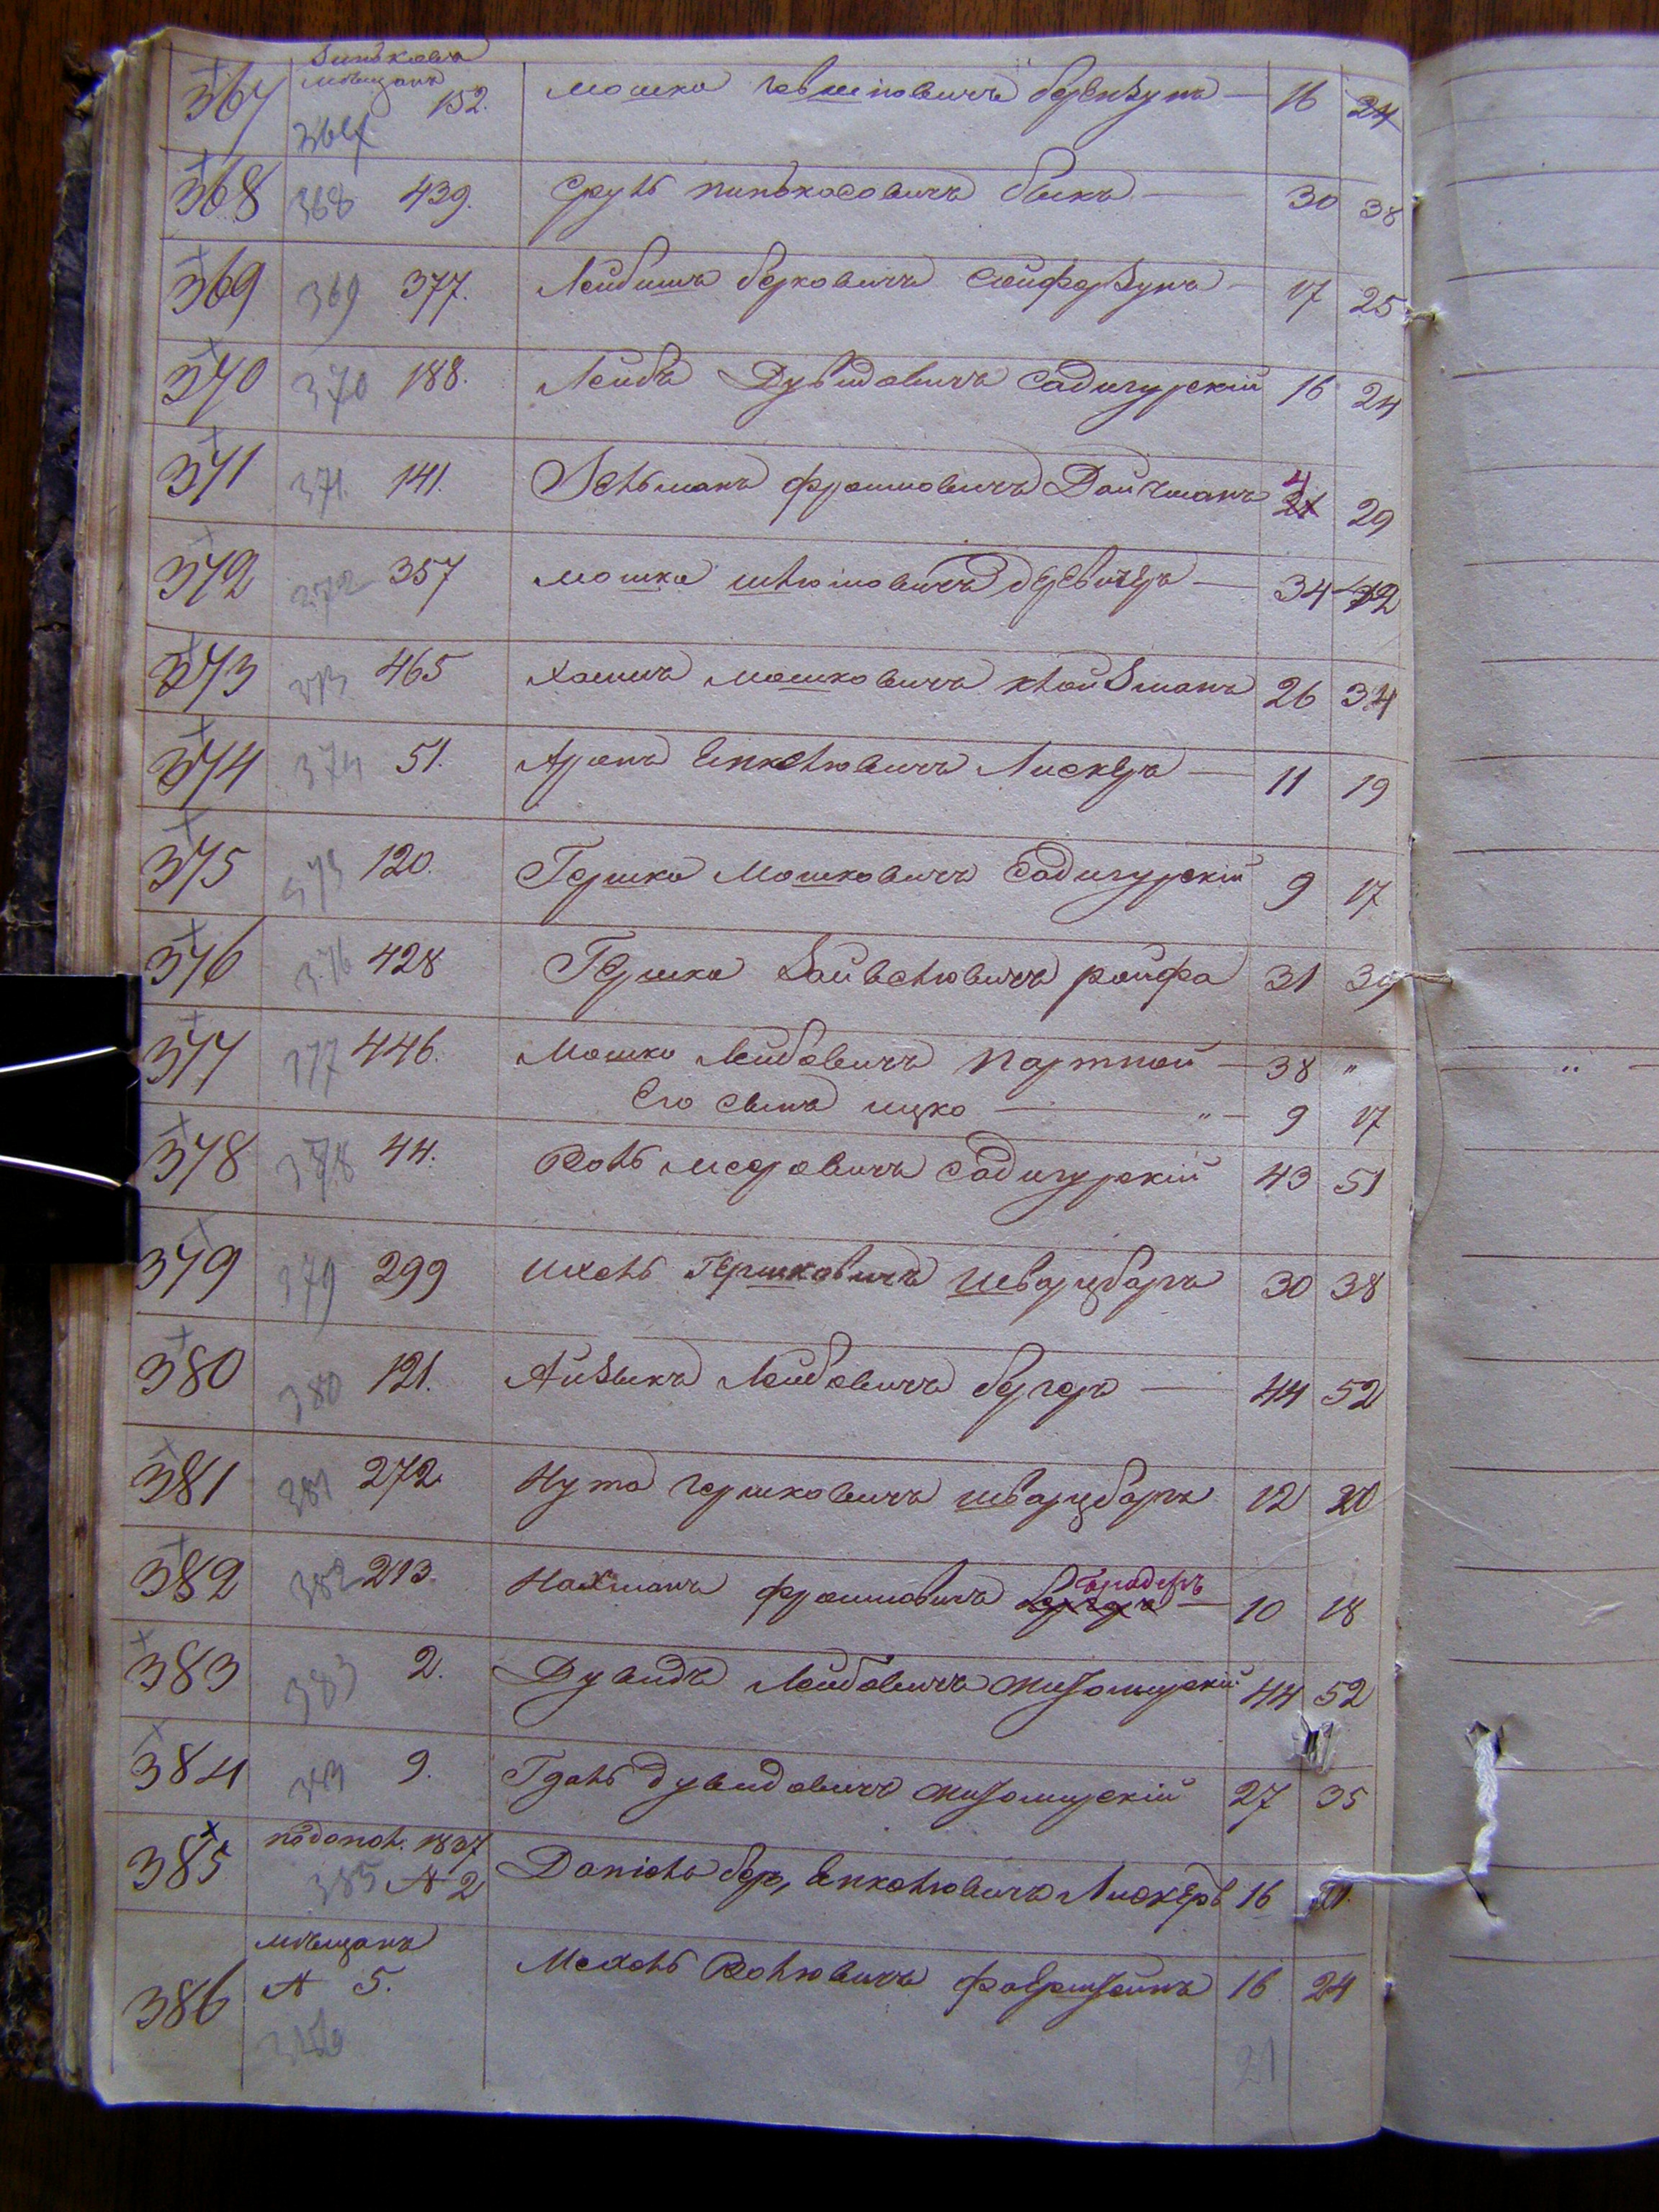 Зиньковъ
мѣщанъ
367 367 152. Мошко берензунъ — 16 24
368 368 439. Сруль пинькасовичъ быкъ — 30 38
369 369 377. Лейбишъ берковичъ сойферзунъ — 17 25
370 370 188. Лейба Дувидовичъ садигурскій 16 24
371 371. 141. Зельманъ фроимовичъ Дайчманъ 21 29
372 372 357 Мошко шлюмовичъ — 34 42
373 373 465 Хаимъ мошковичъ клойзманъ 26 34
374 374 51. Аронъ Енкелювичъ Лискеръ — 11 19
375 375 120. Гершко Мошковичъ садигурскій 9 17
376 376 428 Гершко Зайвелювичъ ройфа 31 39
377 377 446. Мошко Лейбовичъ партной — 38 "
Его сынъ ицко — " — 9 17
378 378 44. Волъ мееровичъ садигурскій 43 51
379 379 299 Ихель Гершковичъ шварцбаргъ 30 38
380 380 121. Айзыкъ Лейбовичъ бергеръ — 44 52
381 381 272 Нута гершковичъ шварцбаргъ 12 20
382 382 213. Нахманъ фроимовичъ — 10 18
383 383 2. Дувидъ Лейбовичъ житомирскій 44 52
384 383 9. Гдаль дувидовичъ житомирскій 27 35
385 по допол. 1837
385 № 2 Даніелъ бер, Енкелювичъ Лискеръ 16 21.
мѣщанъ
386 № 5. Мехель Волювичъ 16 24
386
21